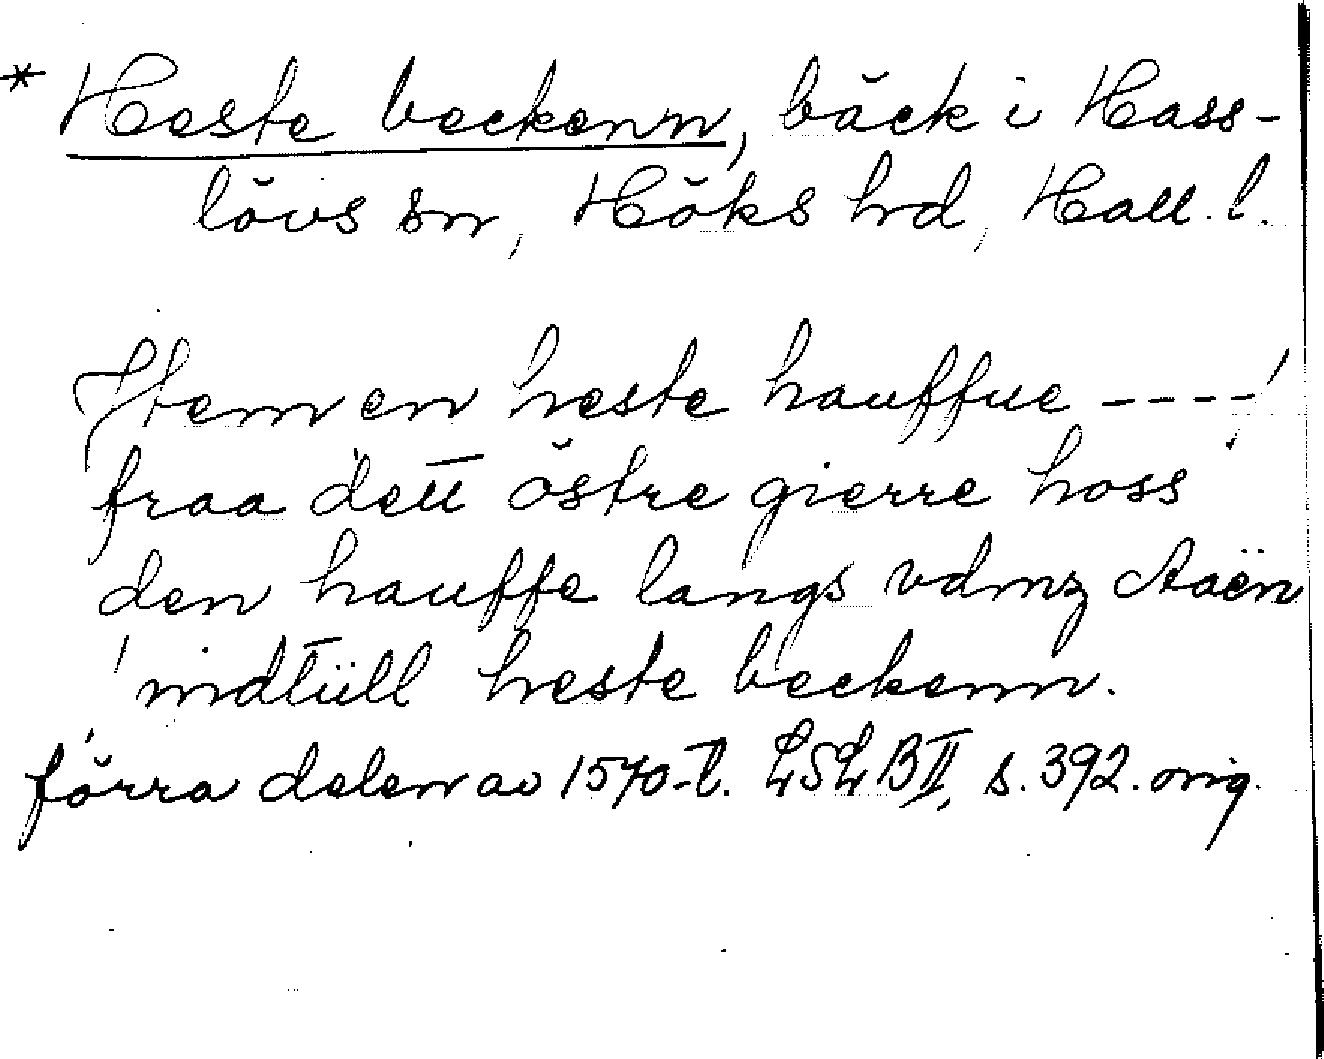 * Heste beckenn, bäck i Hass-
lövs sn, Höks hd, Hall. l.
Item en heste hauffue ----
fraa dett östre gierre hoss
den hauffe langs vdmz Aaen
indtill heste beckenn.
förra delen av 1570-t. LSL B II, s. 392. orig.